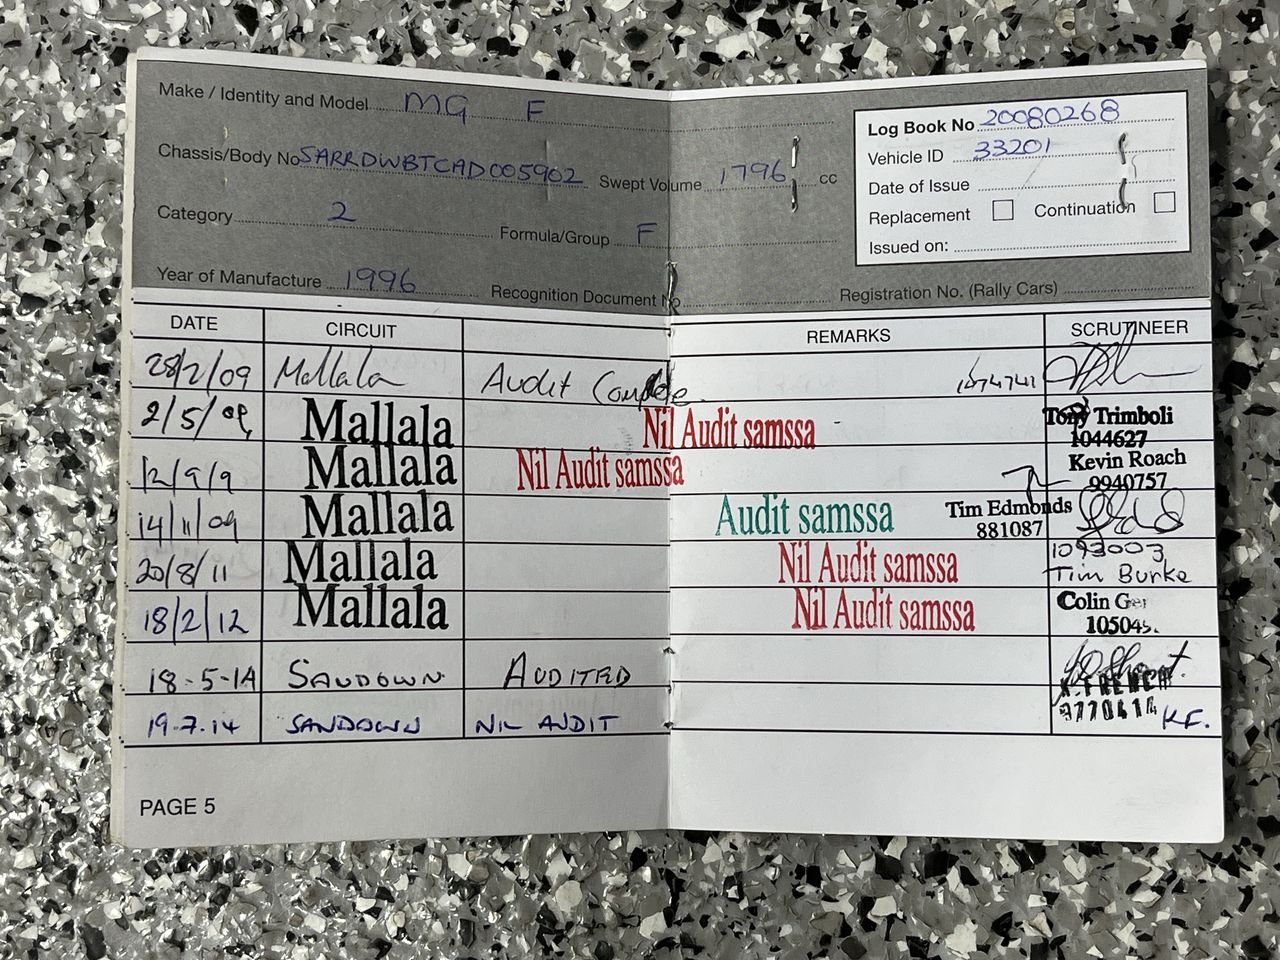 Make / Identity and Model MG F
Log Book No 20080268
Vehicle ID 33201
Chassis/Body No SARRDWBTCAD005902 Swept Volume 1796 cc
Date of Issue
Category 2 Formula/Group F
Replacement Continuation
Issued on:
Year of Manufacture 1996 Recognition Document No Registration No. (Rally Cars)
DATE CIRCUIT REMARKS SCRUTINEER
28/2/09 Mallala Audit Complete.
2/5/09 Mallala Nil Audit samssa Tony Trimboli
1044627
12/9/9 Mallala Nil Audit samssa Kevin Roach
9940757
14/11/09 Mallala Audit samssa Tim Edmonds
881087
20/8/11 Mallala Nil Audit samssa 1093003
Tim Burke
18/2/12 Mallala Nil Audit samssa Colin
18-5-14 SANDOWN AUDITED
19-7-14 SANDOWN NIL AUDIT K.F.
PAGE 5